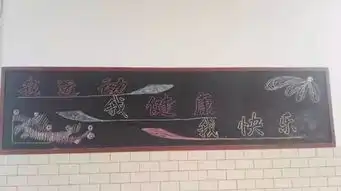 我运动
我健康
我快乐